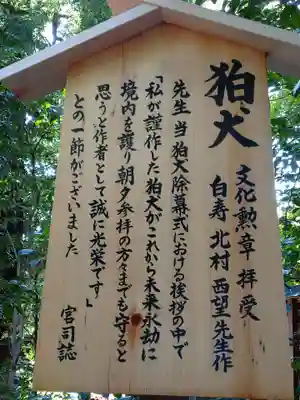 狛犬
文化勲章 拝受
白寿 北村 西望 先生作
先生 当 狛犬除幕式における挨拶の中で
「私が謹作した狛犬がこれから未来永劫に
境内を護り朝夕参拝の方々までも守ると
思うと作者として誠に光栄です」
との一節がございました
宮司誌